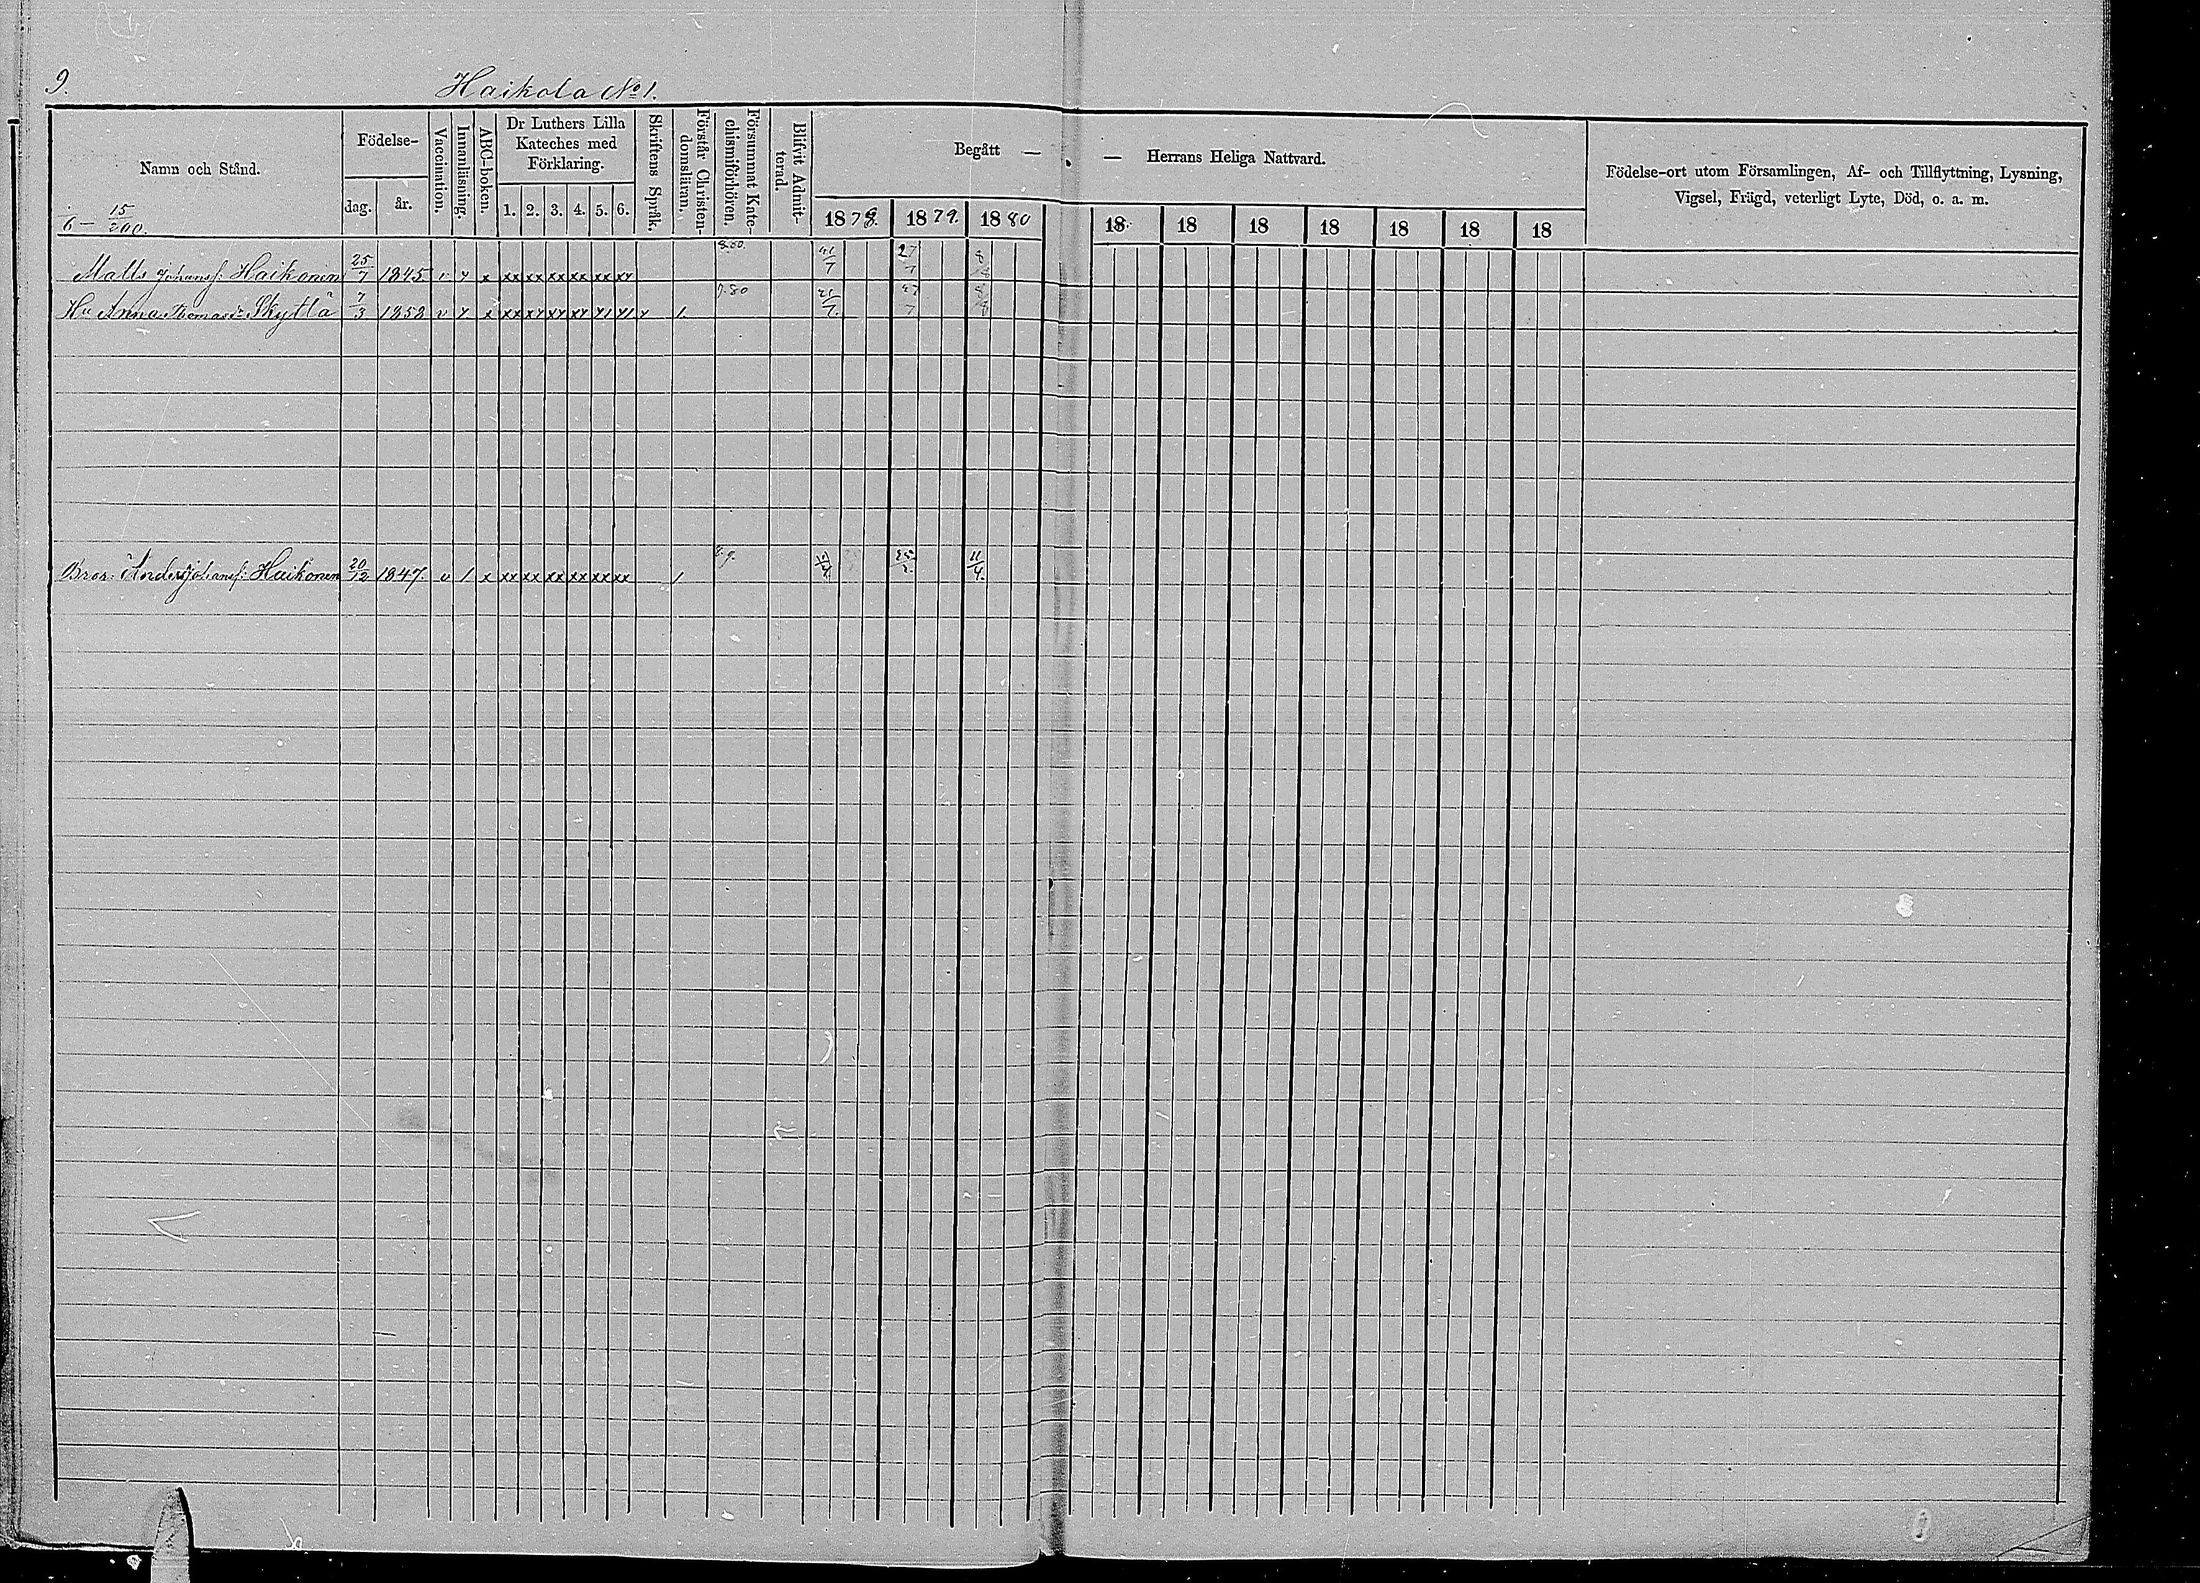 9.
Haikola No 1.
Namn och Stånd.
Födelse-
dag.
år.
Vaccination.
Innanläsning.
ABC-boken.
Dr Luthers Lilla Kateches med Förklaring.
1. 2. 3. 4. 5. 6.
Skriftens Språk.
Förstår Christendomsläran.
Försummat Katechismiförhören.
Blifvit Admitterad.
Begått — — Herrans Heliga Nattvard.
1878. 1879. 1880 18 18 18 18 18 18 18
Födelse-ort utom Församlingen, Af- och Tillflyttning, Lysning,
Vigsel, Frägd, veterligt Lyte, Död, o. a. m.
15/200.
Matts Johansf: Haikonen 25/7 1845 v y x xx xx xx xx xx xx 27/7
Hu Anna Thomasd: Skyttä 7/3 1852 v y x 7.80 27/7
Bror: Anders Johansf: Haikonen 20/12 1847. v 1 x xx xx xx xx xx xx / 11/4.